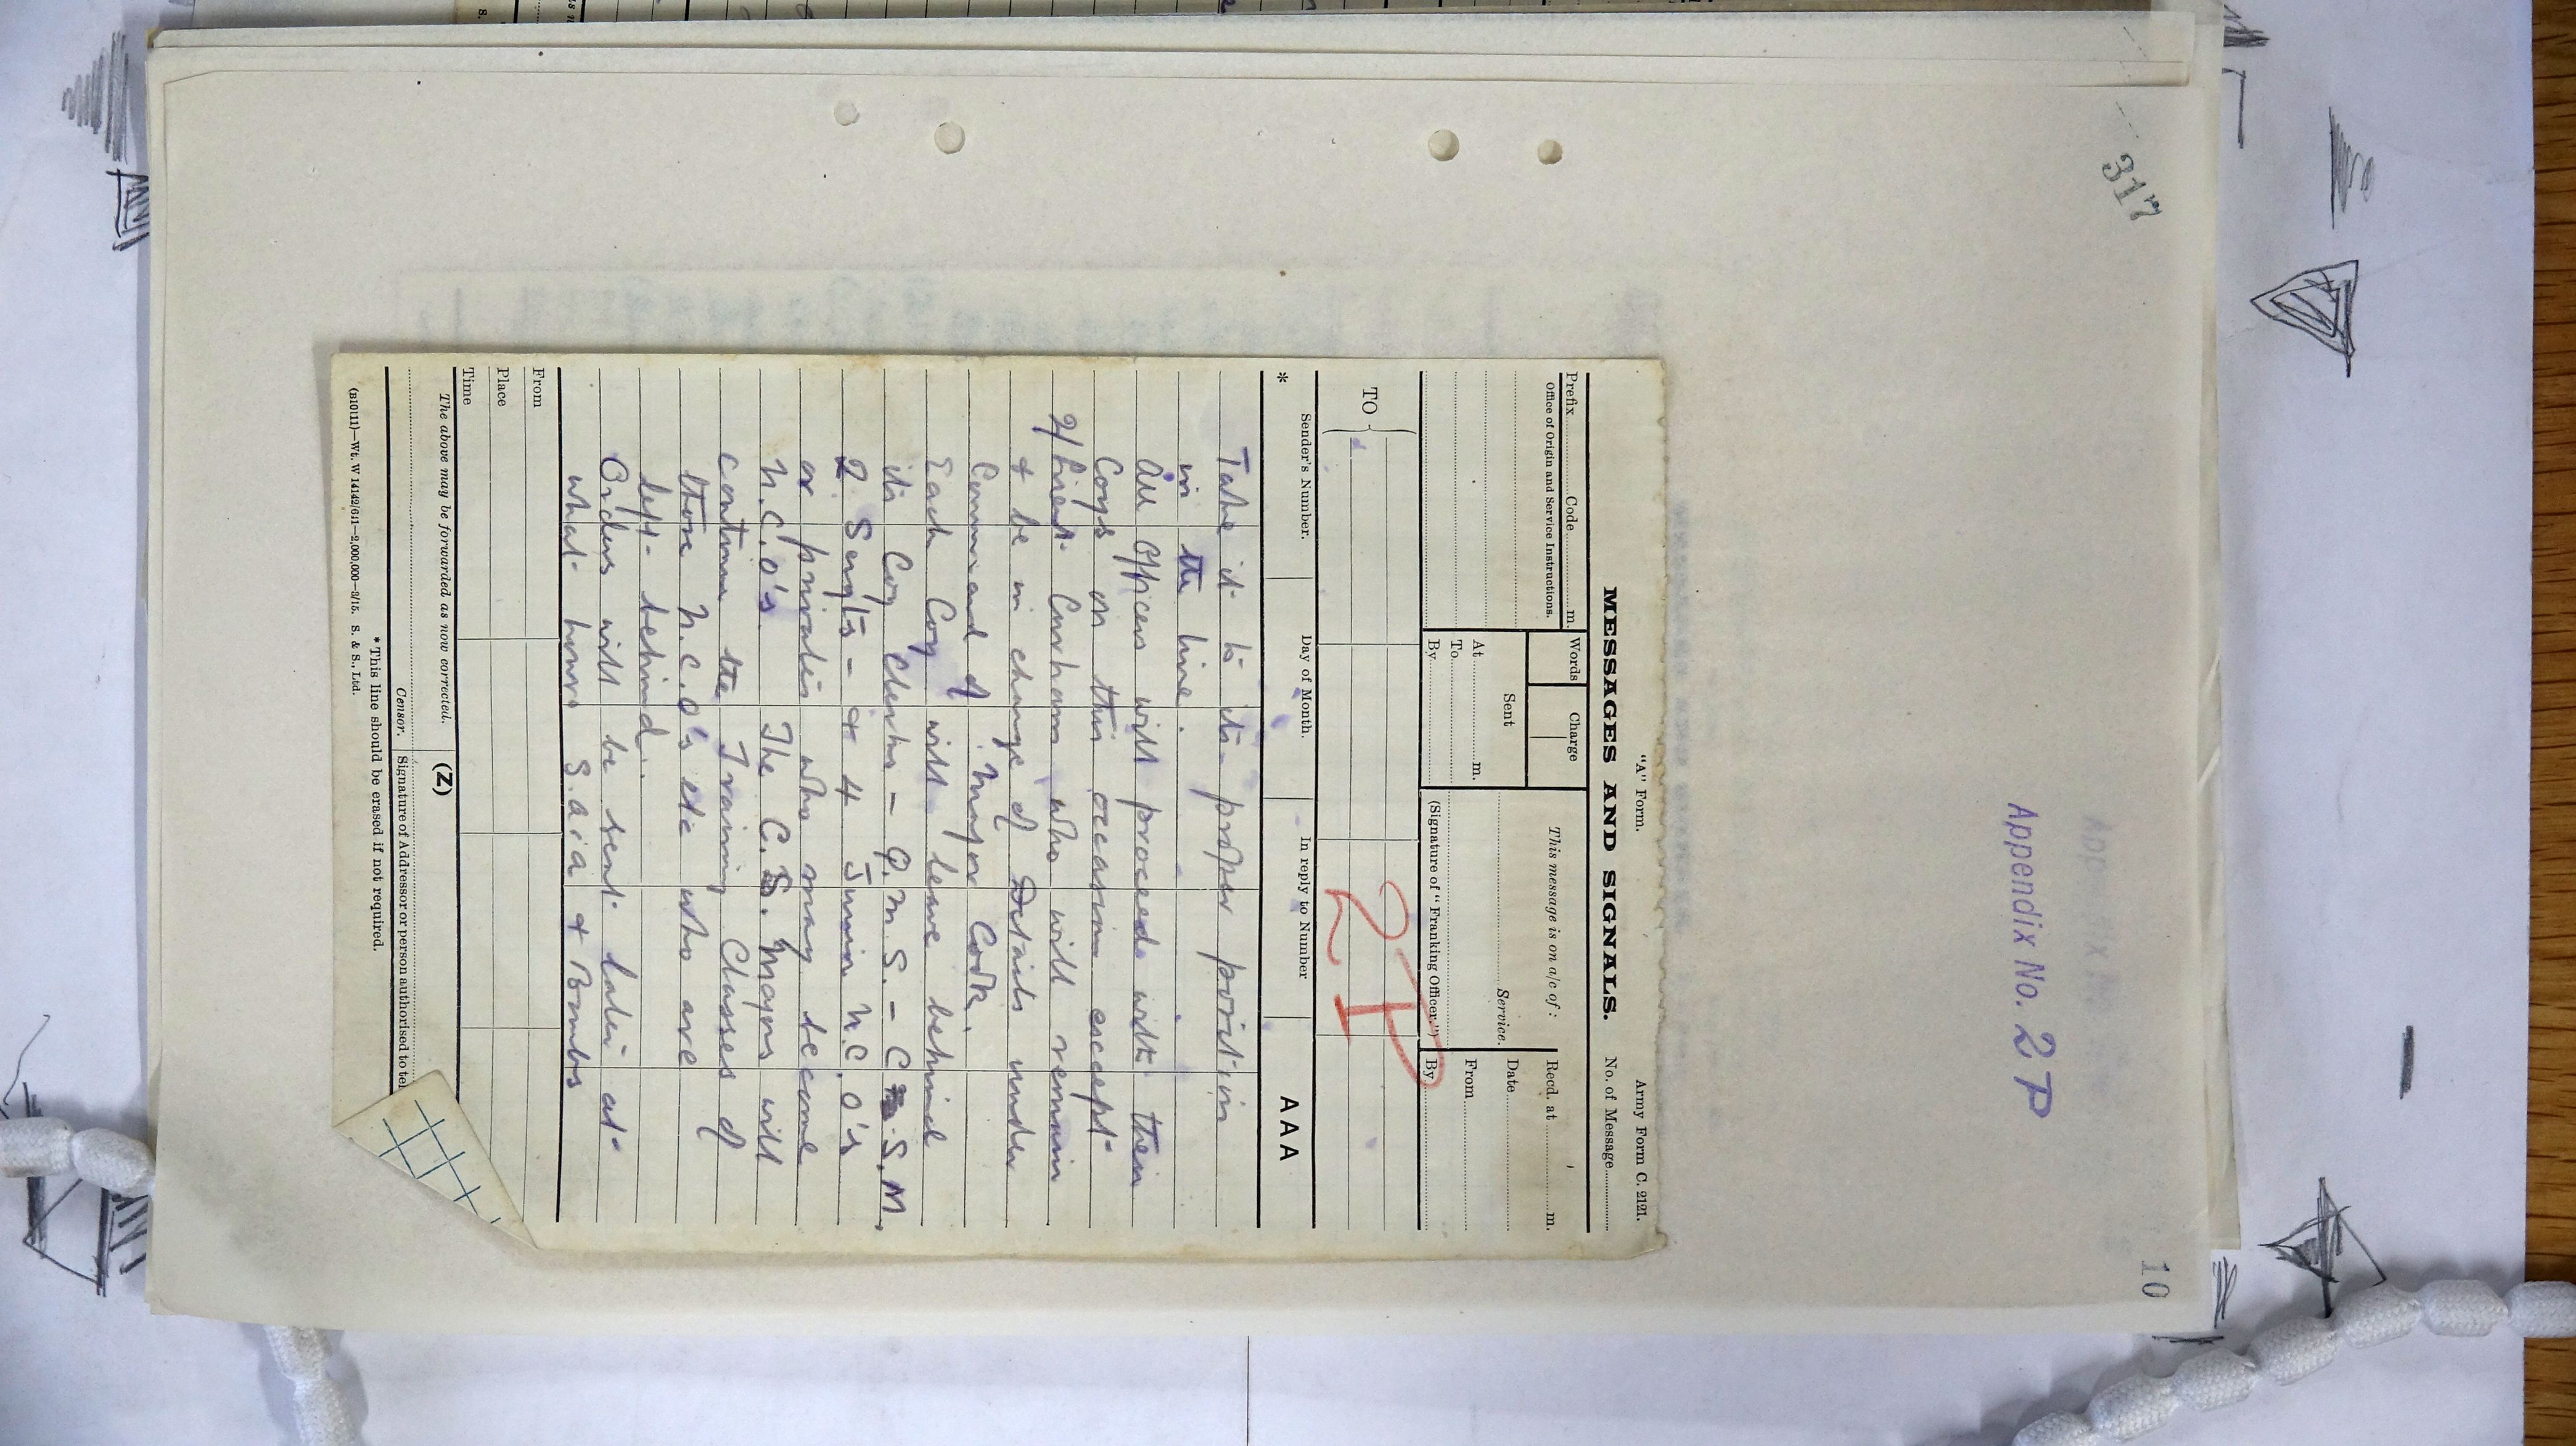 317
10
Appendix No. 2P
"A" Form.
Army Form C. 2121.
MESSAGES AND SIGNALS.
No. of Message
Prefix Code m.
Words
Charge
This message is on a/c of :
Recd. at m.
Office of Origin and Service Instructions.
Sent
Service.
Date
At m.
From
To
By
(Signature of "Franking Officer.")
By
TO
2P
21
Sender's Number.
Day of Month.
In reply to Number
AAA
*
Take it to its proper position
in the line.
All officers will proceed with their
Coys on this occasion except
2/Lieut. who will remain
& be in charge of Details under
Command of Major Cook.
Each Coy will leave behind
its Coy clerks - Q.M.S. - C.S.M.
2 Sergts - & 4 Junior N.C.O's
or privates who may become
N.C.O's. The C.S. Majors will
continue the Training Classes of
those N.C.O's etc who are
left behind.
Orders will be sent later at
what hours S.a.a & Bombs
From
Place
Time
The above may be forwarded as now corrected.
(Z)
Censor.
Signature of Addressor or person authorised to te
* This line should be erased if not required.
(B10111)—Wt. W 14142/611—2,000,000—3/15. S. & S., Ltd.